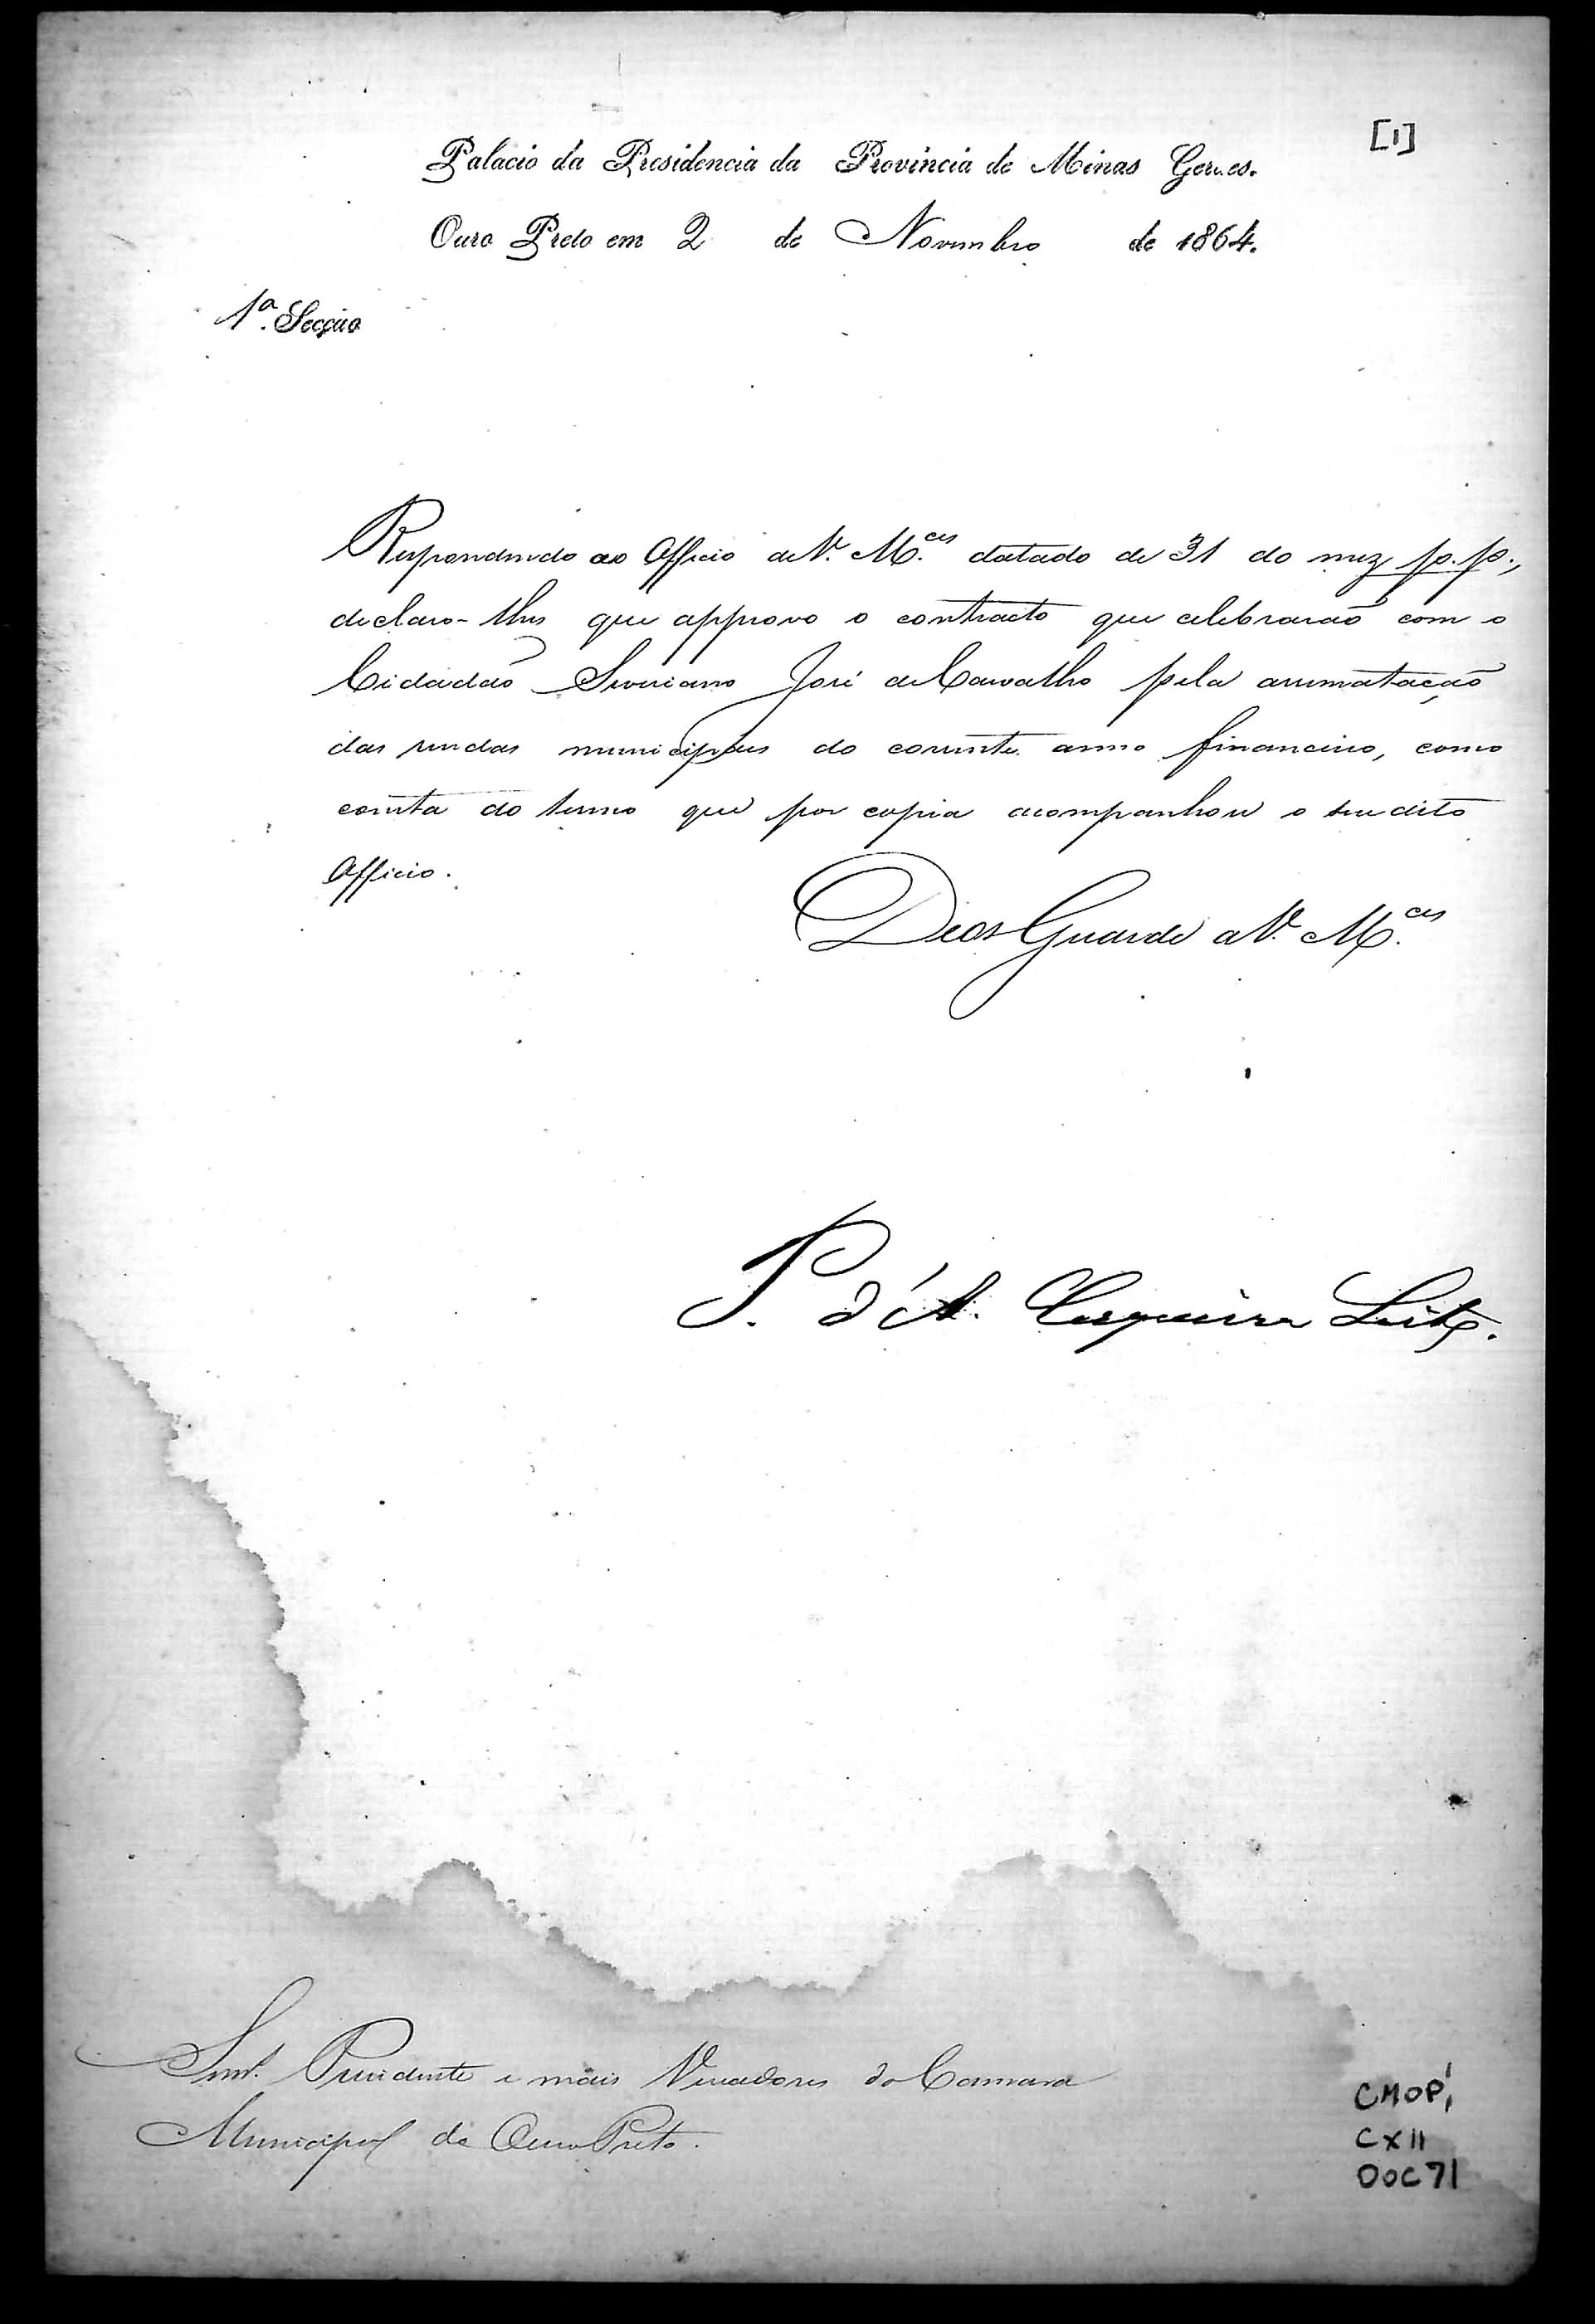 [1]
Palacio da Presidencia da Provincia de Minas Geraes.
Ouro Preto em 2 de Novembro de 1864.
1ª. Secção
Respondendo ao Officio de V. M.ces datado de 31 do mez p.p.,
declaro-lhes que approvo o contracto que celebrarão com o
Cidadão Severiano José de Carvalho pela arrematação
das rendas municipaes do corrente anno financeiro, como
consta do termo que por copia acompanhou o seu dito
Officio.
Deos Guarde a V. M.ces
P. d'A. Cerqueira Leite.
Snrs. Presidente e mais Vereadores da Camara
Municipal de Ouro Preto.
CMOP,
CX 11
DOC 71